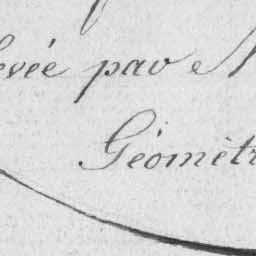 evée par M
Géomètr